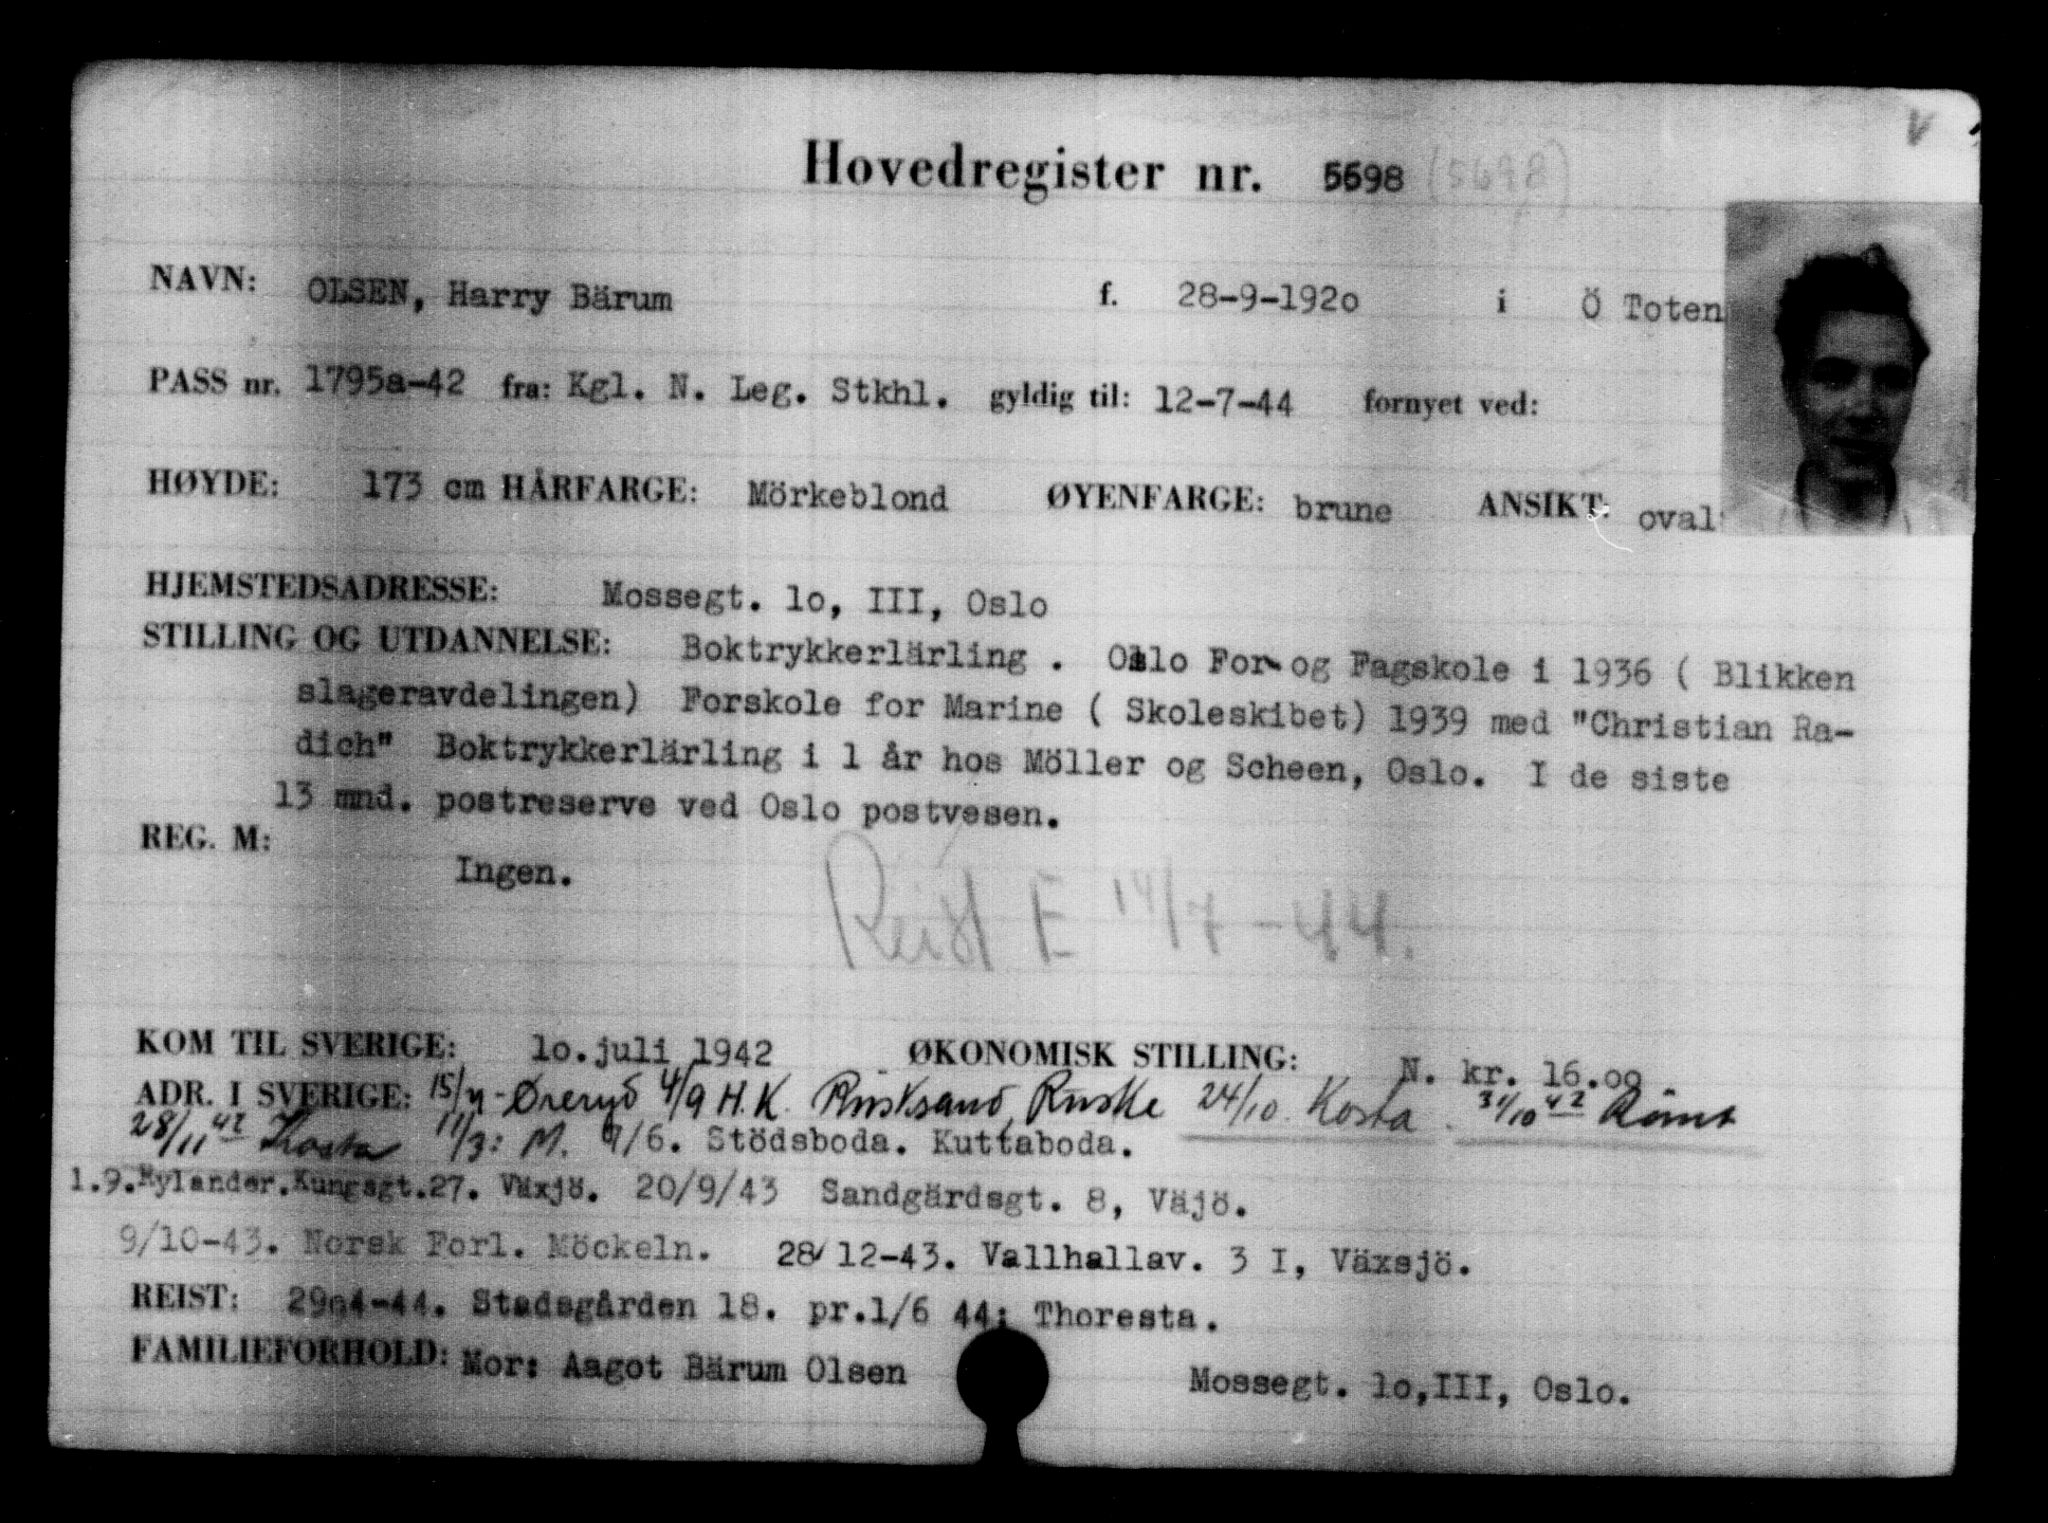 V
Hovedregister nr. 5698 (5698)
NAVN: OLSEN, Harry Bärum f. 28-9-192o i Ö Toten
PASS nr. 1795a-42 fra: Kgl. N. Leg. Stkhl. gyldig til: 12-7-44 fornyet ved:
HØYDE: 173 cm HÅRFARGE: Mörkeblond ØYENFARGE: brune ANSIKT: oval
HJEMSTEDSADRESSE: Mossegt. lo, III, Oslo
STILLING OG UTDANNELSE: Boktrykkerlärling . Oslo For- og Fagskole i 1936 ( Blikken
slageravdelingen) Forskole for Marine ( Skoleskibet) 1939 med "Christian Ra-
dich" Boktrykkerlärling i 1 år hos Möller og Scheen, Oslo. I de siste
13 mnd. postreserve ved Oslo postvesen.
REG. M: Ingen.
Reist E 14/7-44.
KOM TIL SVERIGE: lo.juli 1942 ØKONOMISK STILLING: N. kr. 16.oo
ADR. I SVERIGE: Øreryd 4/9 H.K. Rusksand, Ruske 24/10. Kosta. 31/10 42 Rømt
28/11 42 Kosta 11/3: M. 7/6. Stödsboda. Kuttaboda.
1.9.Rylander.Kungsgt.27. Växjö. 20/9/43 Sandgärdsgt. 8, Väjö.
9/10-43. Norsk Forl. Möckeln. 28/12-43. Vallhallav. 3 I, Växsjö.
REIST: 29o4-44. Stadsgården 18. pr.1/6 44: Thoresta.
FAMILIEFORHOLD: Mor: Aagot Bärum Olsen Mossegt. lo,III, Oslo.